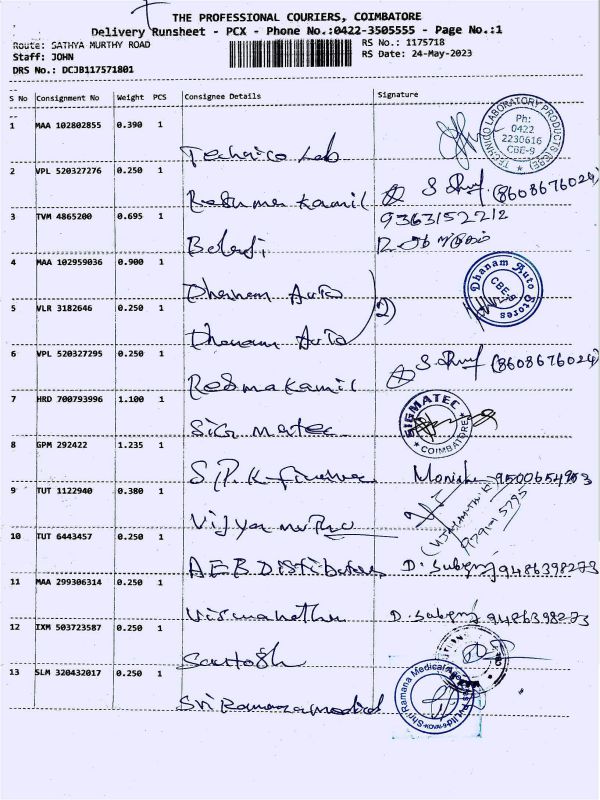 THE PROFESSIONAL COURIERS, COIMBATORE
Delivery Runsheet - PCX - Phone No.:0422-3505555 - Page No.:1
Route: SATHYA MURTHY ROAD
RS No.: 1175718
Staff: JOHN
RS Date: 24-May-2023
DRS No.: DCJB117571801
S No Consignment No Weight PCS Consignee Details Signature
1 MAA 102802855 0.390 1 Technico Lab
TECHNICO LABORATORY PRODUCTS (CBE)
Ph:
0422
2230616
CBE-9
2 VPL 520327276 0.250 1 Kamil (8608676024)
3 TVM 4865200 0.695 1 Balaji
9363152212
4 MAA 102959036 0.900 1 Dhanam Auto
Dhanam Auto Stores
CBE-9
5 VLR 3182646 0.250 1 Dhanam Auto 2)
6 VPL 520327295 0.250 1 Reshma Kamil (8608676024)
7 HRD 700793996 1.100 1 Sigmatec
SIGMATEC
COIMBATORE
8 GPM 292422 1.235 1 S.P.K Finance
9 TUT 1122940 0.380 1
10 TUT 6443457 0.250 1 AEB Distributers 9486398273
11 MAA 299306314 0.250 1 9486398273
12 IXM 503723587 0.250 1 Santosh
13 SLM 320432017 0.250 1 Sri Ramana medical
Shri Ramana Medical Agencies Pvt Ltd
KOVAI-9